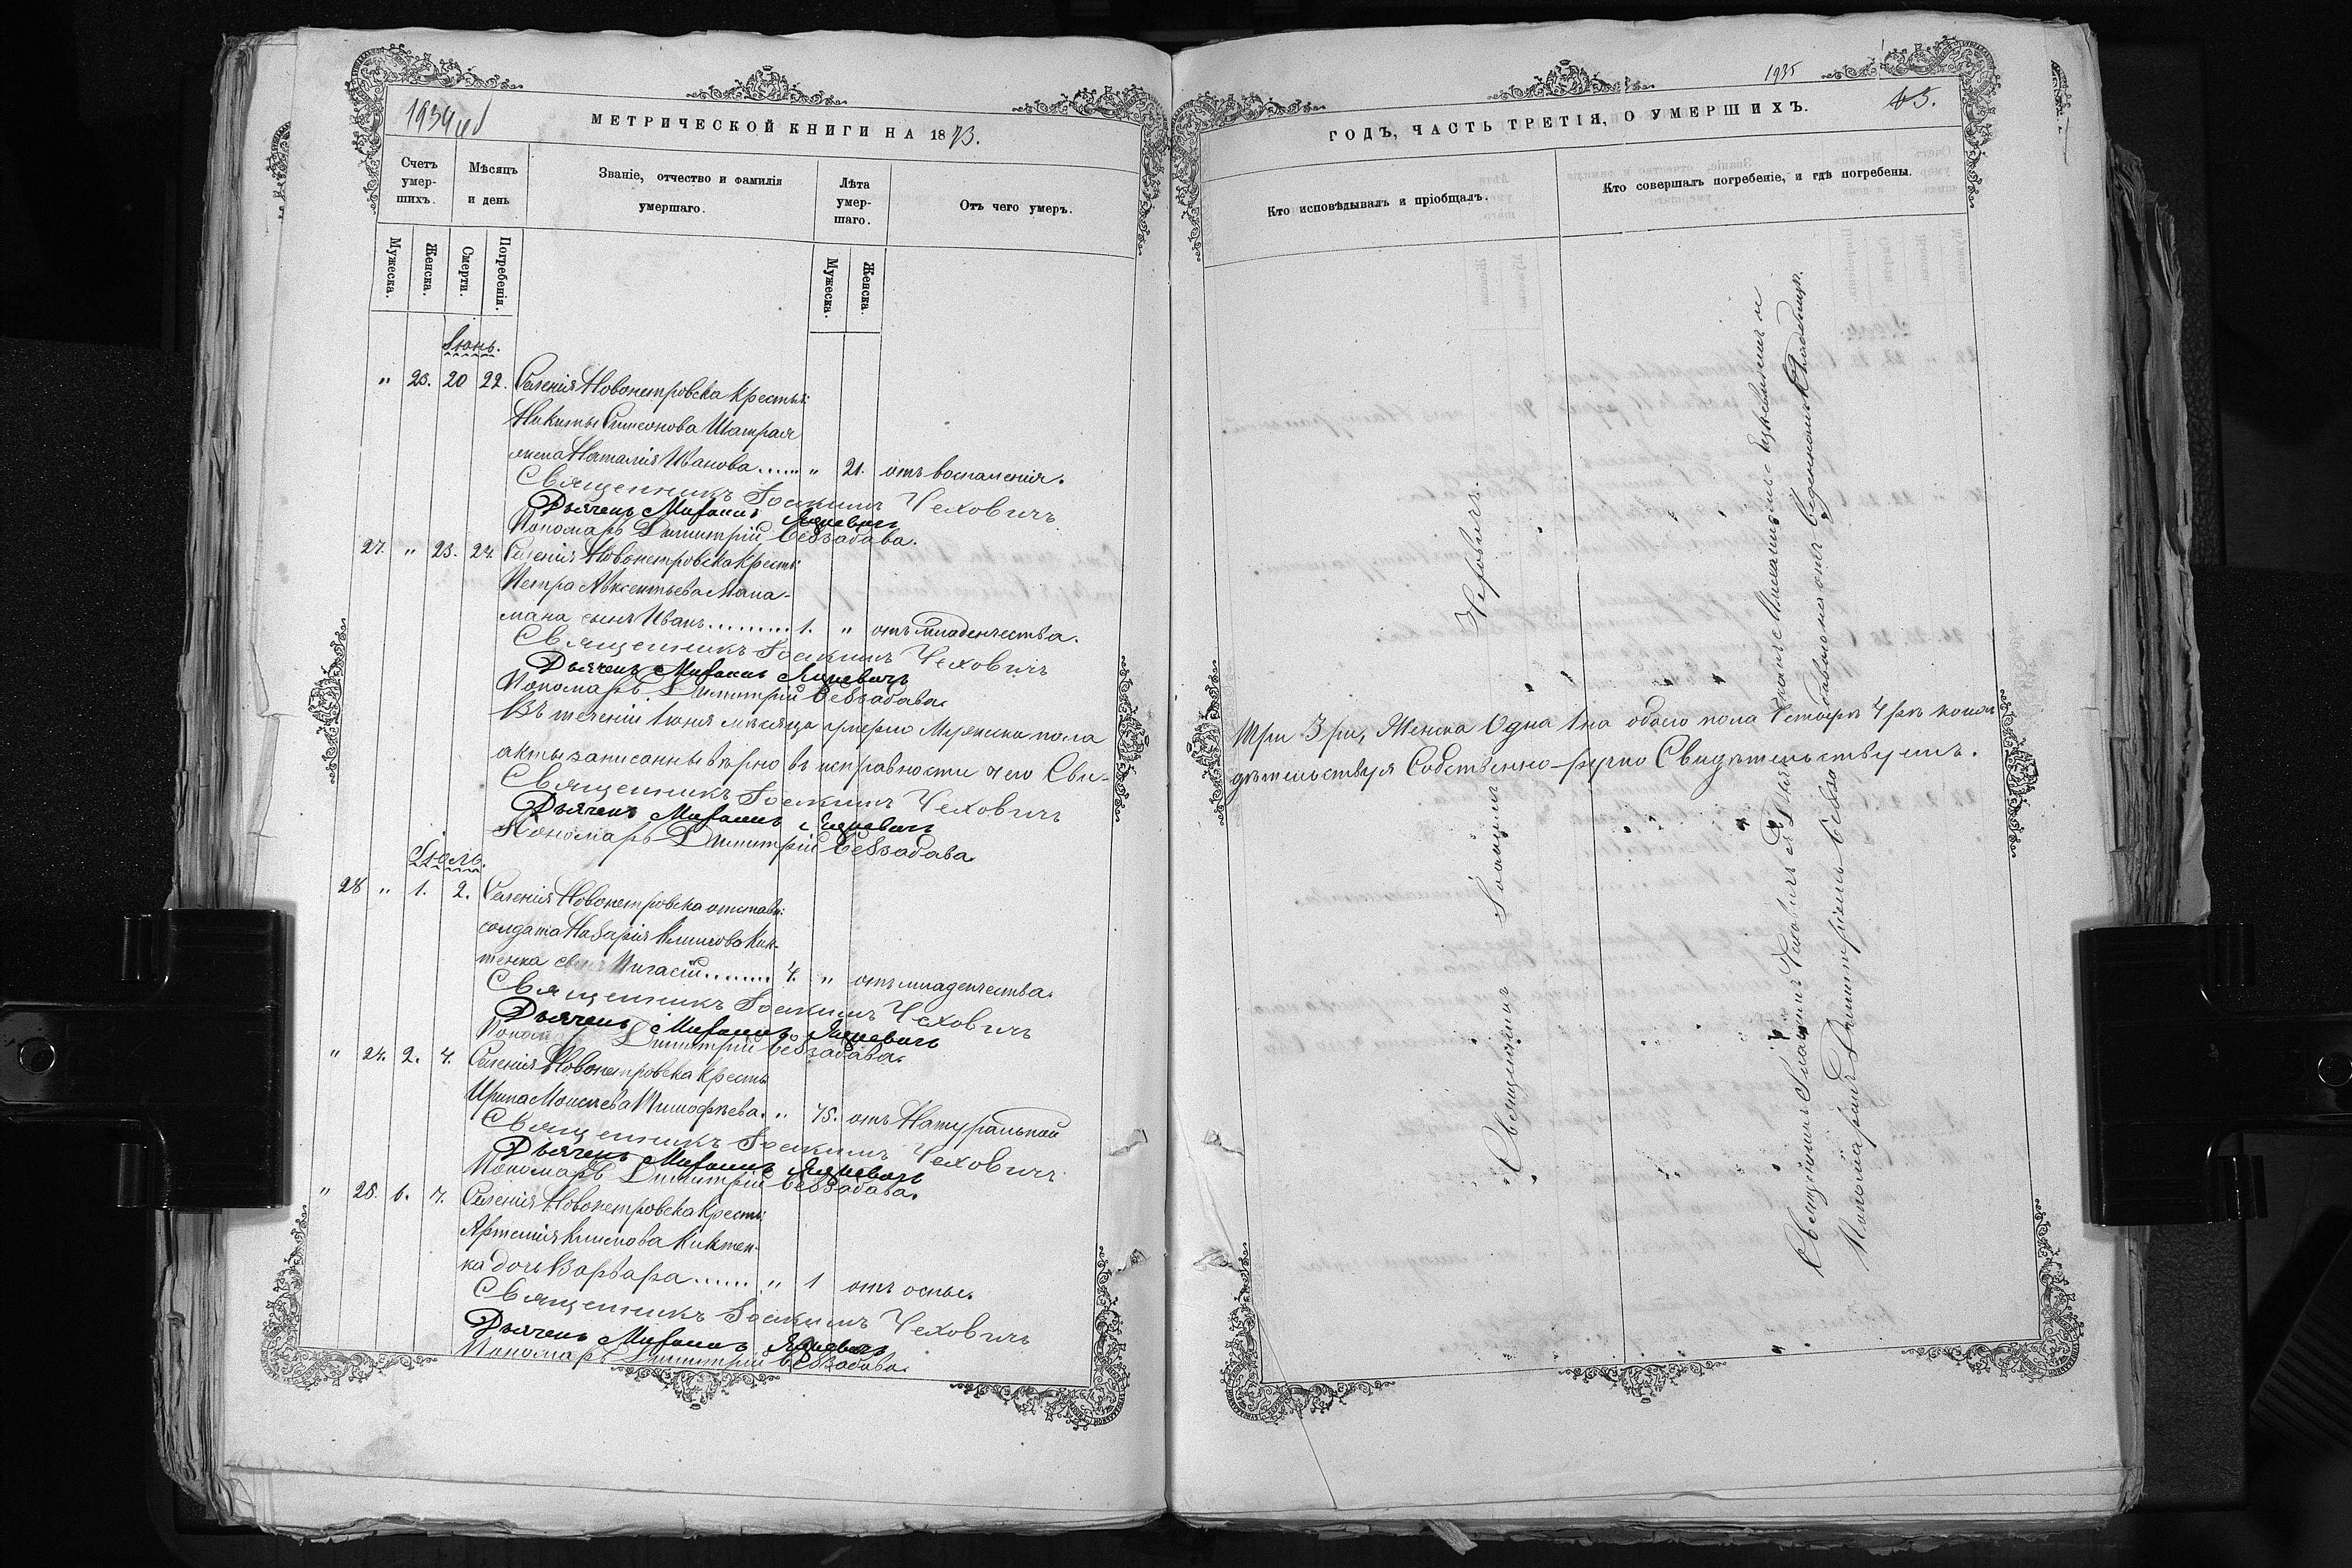 1934
МЕТРИЧЕСКОЙ КНИГИ НА 1873.
Счетъ умер-шихъ.
Мѣсяцъ и день
Званіе, отчество и фамилія умершаго.
Лѣта умер-шаго.
Отъ чего умеръ.
Мужеска.
Женска.
Смерти.
Погребенія.
Мужеска.
Женска.
Іюнь.
" 23. 20 22. Селенія Новопетровска крестьян:
Никиты Симеонова Шатрая
жена Наталія Иванова...... " 21. отъ воспаленія.
Священникъ Іоакимъ Чеховичъ
Дьячекъ Михаилъ Яцкевичъ
Пономарь Димитрій Беззабава.
27. " 23. 24. Селенія Новопетровска крестьян:
Петра Авксентьева Мана-
мана сынъ Иванъ......... 1. " отъ младенчества.
Священникъ Іоакимъ Чеховичъ
Дьячекъ Михаилъ Яцкевичъ
Пономарь Димитрій Беззабава.
Въ теченіи Іюня мѣсяца умерло Мужеска пола
акты записанны вѣрно въ исправности чего Сви-
Священникъ Іоакимъ Чеховичъ
Дьячекъ Михаилъ Яцкевичъ
Пономарь Димитрій Беззабава.
Іюль.
28 " 1. 2. Селенія Новопетровска отставн:
солдата Назарія Климова Кик-
тенка сынъ Пигасій........ 4. " отъ младенчества.
Священникъ Іоакимъ Чеховичъ
Дьячекъ Михаилъ Яцкевичъ
Пономарь Димитрій Беззабава.
" 24. 2. 4. Селенія Новопетровска крестья
Ирина Моисеева Тимофѣева. " 75. отъ Натуральной
Священникъ Іоакимъ Чеховичъ
Дьячекъ Михаилъ Яцкевичъ
Пономарь Димитрій Беззабава.
" 25. 6. 7. Селенія Новопетровска Крестьян:
Артемія Климова Киктен-
ка дочь Варвара...... " 1 отъ оспы.
Священникъ Іоакимъ Чеховичъ
Дьячекъ Михаилъ Яцкевичъ
Пономарь Димитрій Беззабава.
1935
ГОДЪ, ЧАСТЬ ТРЕТІЯ, О УМЕРШИХЪ.
43.
Кто исповѣдывалъ и пріобщалъ.
Кто совершалъ погребеніе, и гдѣ погребены.
Священникъ Іоакимъ Чеховичъ.
Священникъ Іоакимъ Чеховичъ съ Дьячкомъ Михаиломъ Яцкевичемъ и
Пономаремъ Димитріемъ Беззабавою на отведенномъ Кладбищѣ.
Три 3 ри, Женска Одна 1 на обоего пола Четыре 4 ре коихъ
дѣтельствуя Собственно-ручно Свидѣтельствуемъ.